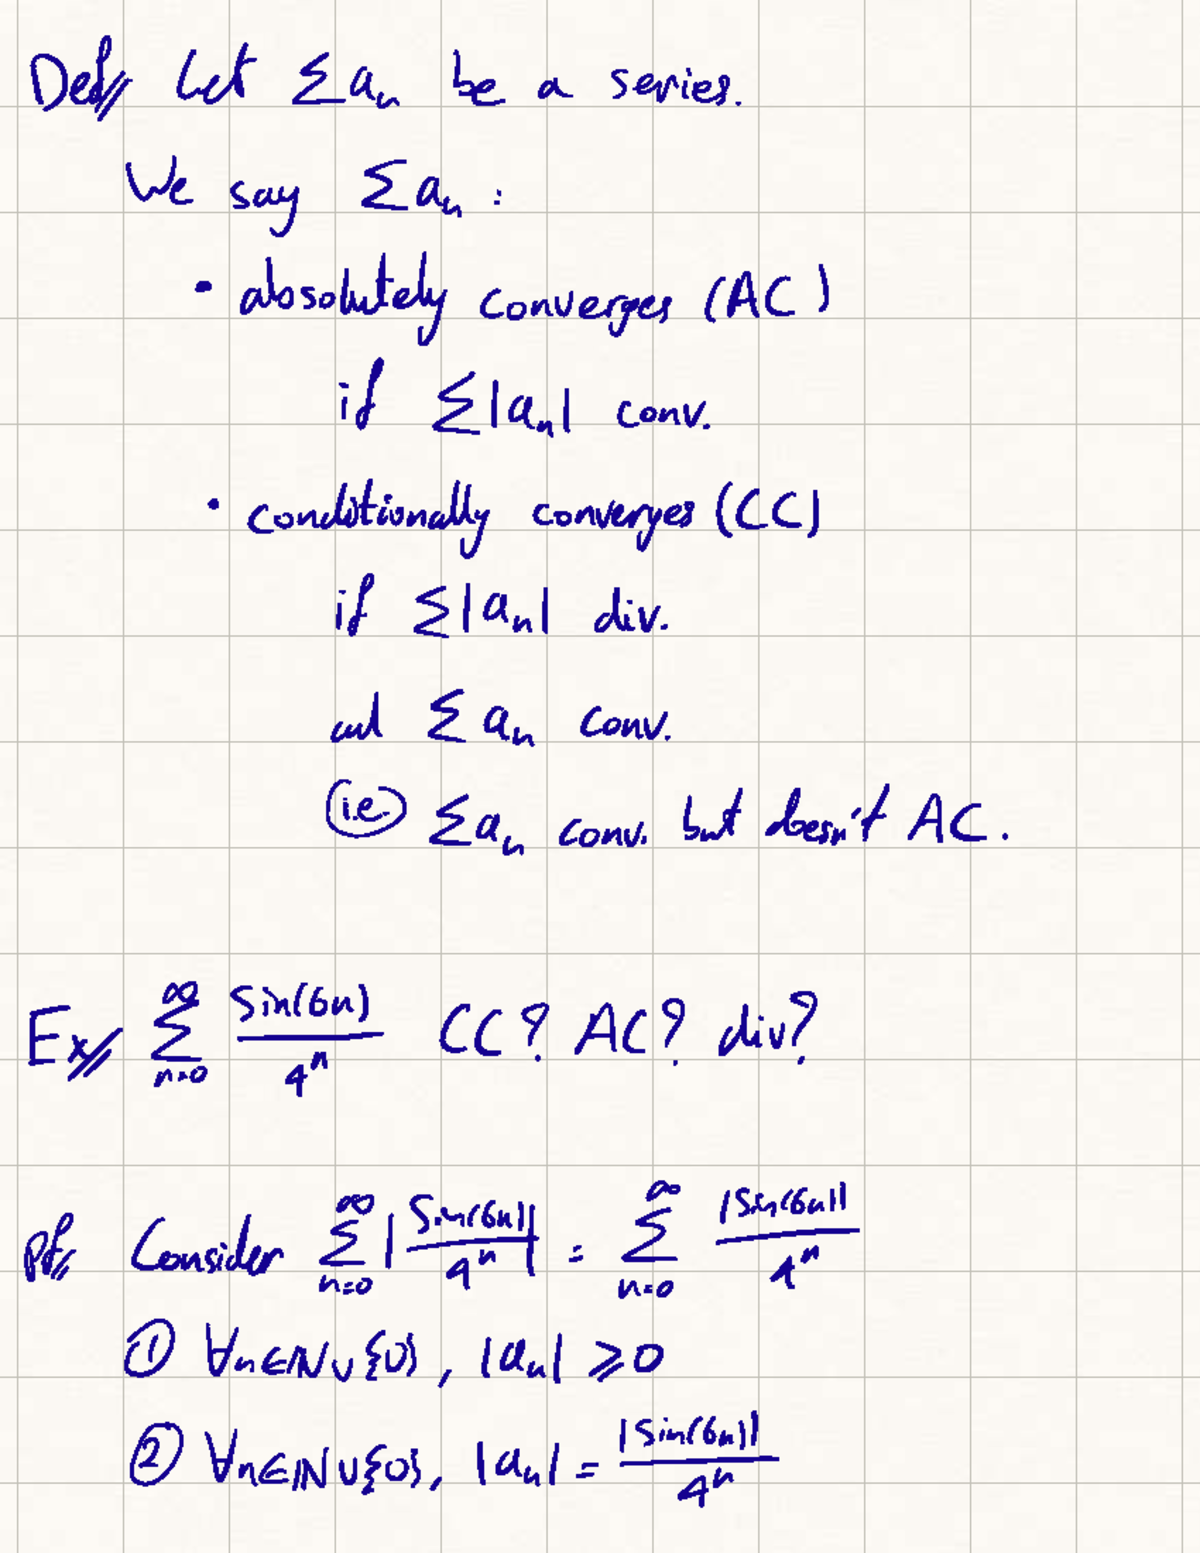 Def// Let Σaₙ be a series.
We say Σaₙ :
• absolutely converges (AC)
if Σ|aₙ| conv.
• conditionally converges (CC)
if Σ|aₙ| div.
and Σ aₙ conv.
(i.e.) Σaₙ conv. but doesn't AC.
Ex// ∑_{n=0}^{∞} sin(6n)/4ⁿ CC? AC? div?
pf// Consider ∑_{n=0}^{∞} |sin(6n)/4ⁿ| = ∑_{n=0}^{∞} |sin(6n)|/4ⁿ
① ∀n∈ℕ∪{0}, |aₙ| ⩾ 0
② ∀n∈ℕ∪{0}, |aₙ| = |sin(6n)|/4ⁿ